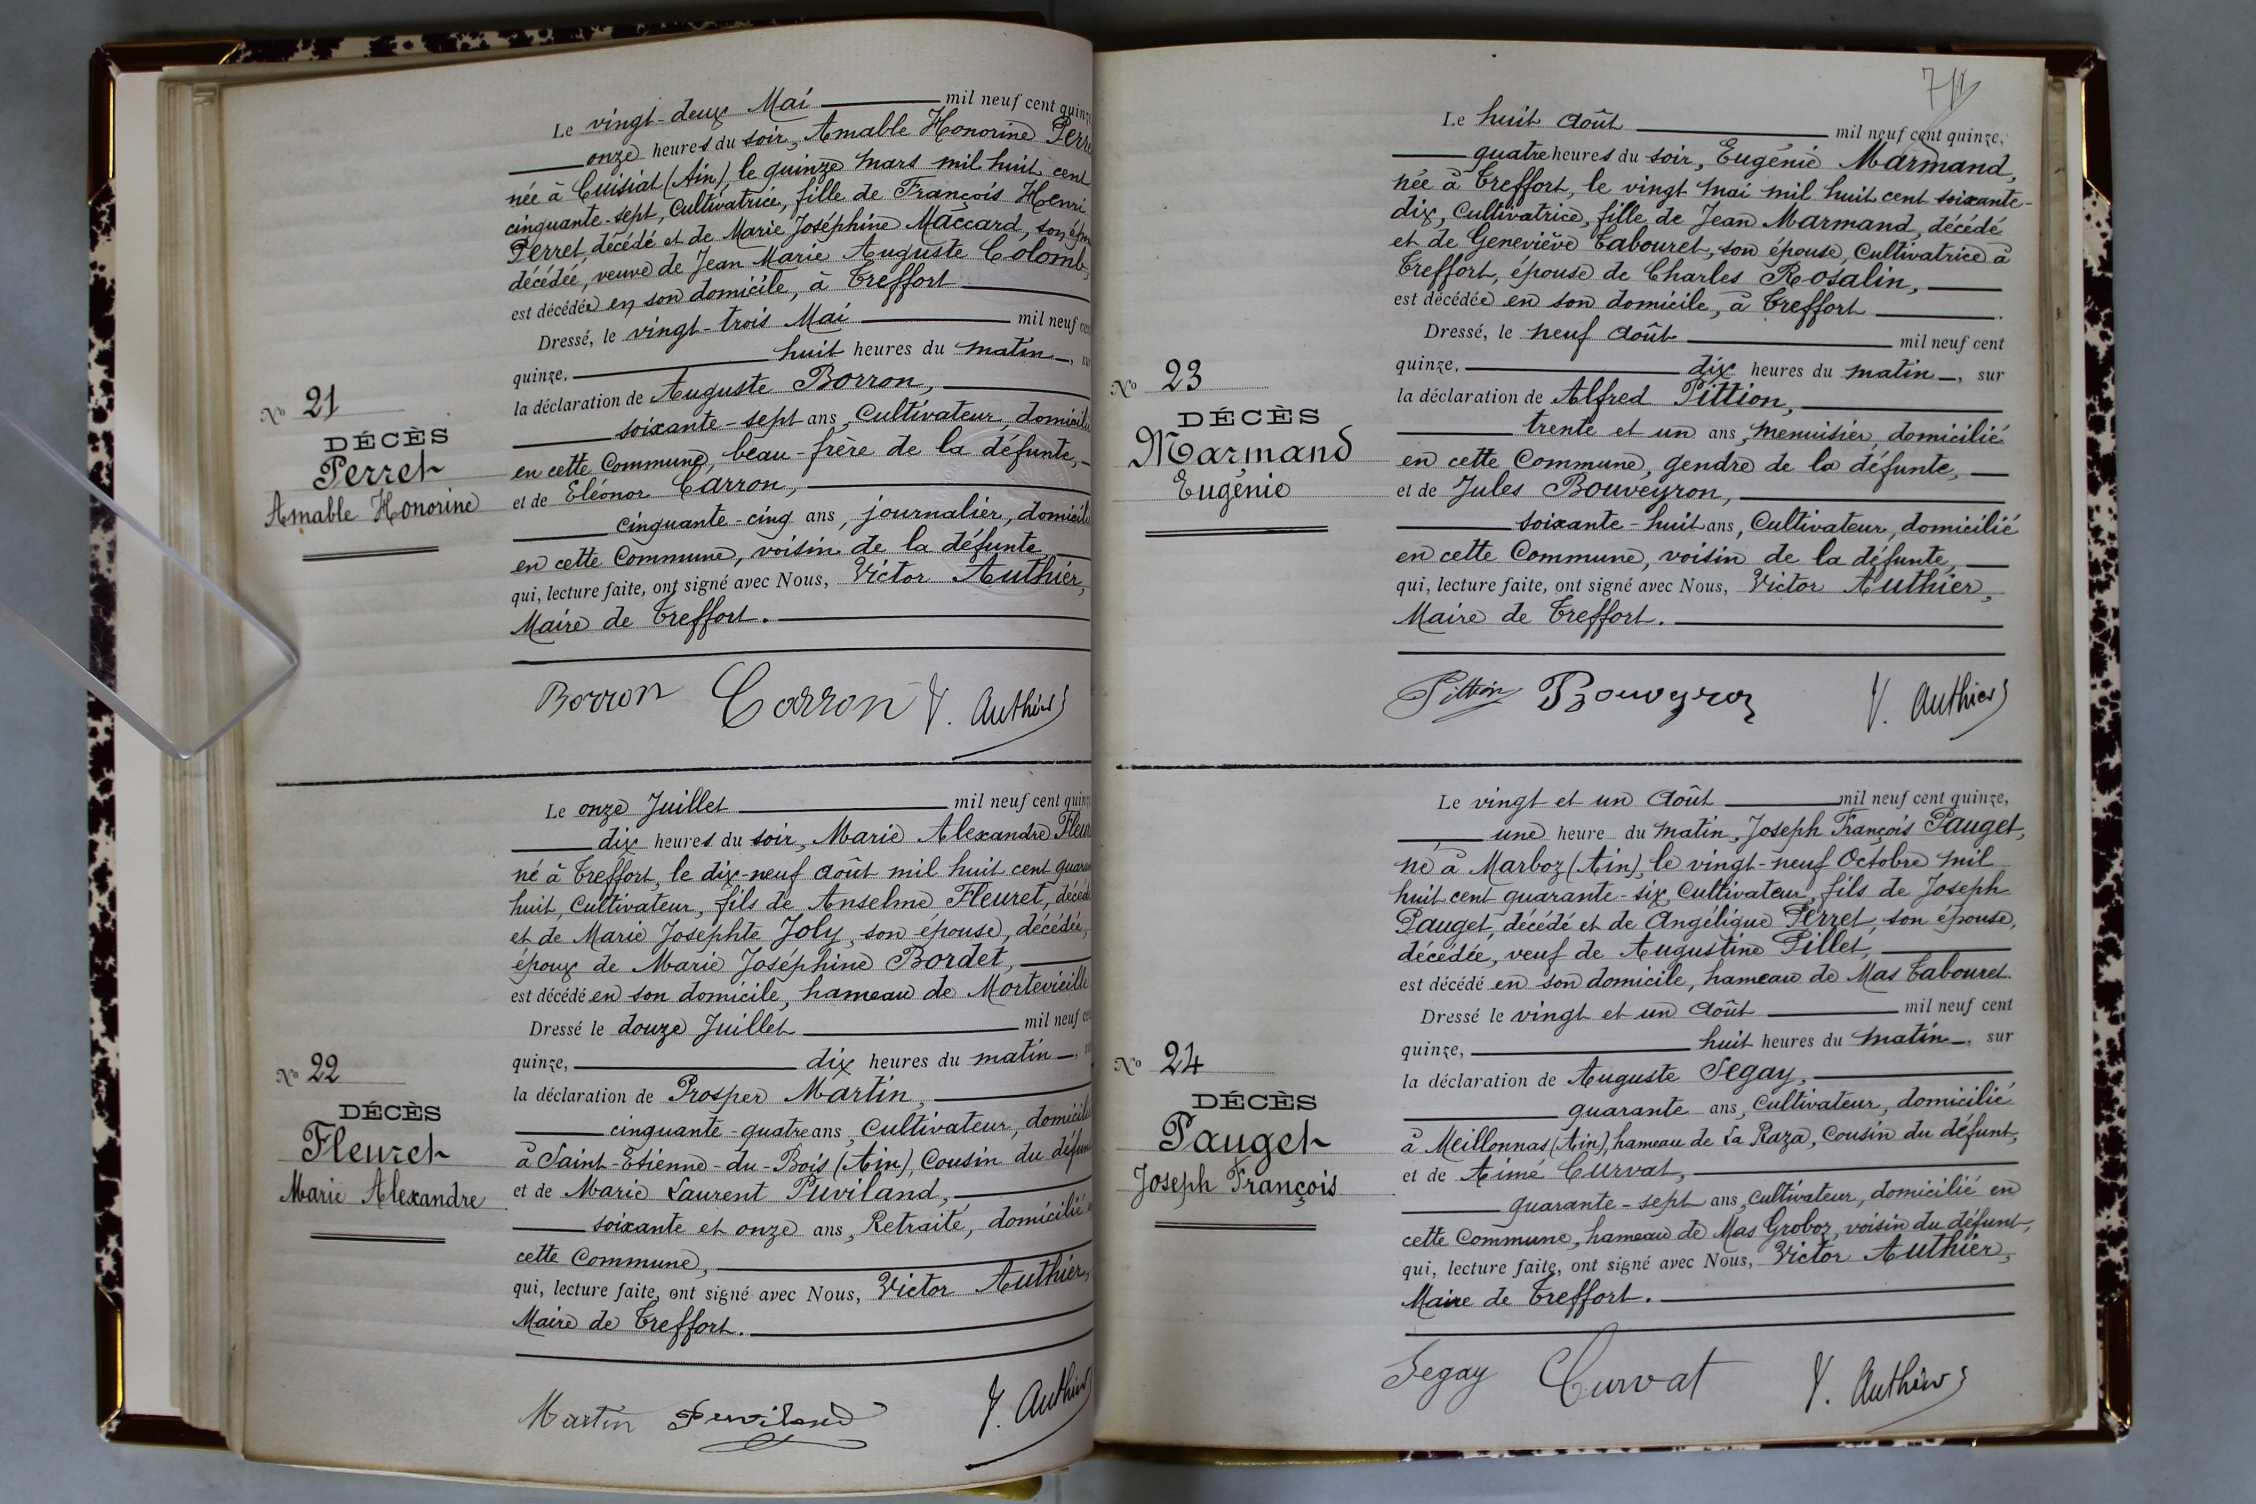 Le vingt-deux Mai mil neuf cent quinze
onze heures du soir, Amable Honorine Perre
née à Cuisiat (Ain), le quinze mars mil huit cent
cinquante-sept, Cultivatrice, fille de François Henri
Perret, décédé et de Marie Joséphine Maccard, son épou
décédée, veuve de Jean Marie Auguste Colomb,
est décédée en son domicile, à Treffort
Dressé, le vingt-trois Mai mil neuf cen
quinze, huit heures du matin,
la déclaration de Auguste Borron,
soixante-sept ans, Cultivateur, domicilié
en cette Commune, beau-frère de la défunte,
et de Eléonor Carron,
cinquante-cinq ans, journalier, domicilié
en cette Commune, voisin de la défunte,
qui, lecture faite, ont signé avec Nous, Victor Authier,
Maire de Treffort.
No 21
DÉCÈS
Perret
Amable Honorine
Borron Carron V. Authier
Le onze Juillet mil neuf cent quinze
dix heures du soir, Marie Alexandre Fleur
né à Treffort, le dix-neuf août mil huit cent quaran
huit, Cultivateur, fils de Anselme Fleuret, décédé
et de Marie Josephte Joly, son épouse, décédée,
époux de Marie Joséphine Bordet,
est décédé en son domicile, hameau de Mortevieille
Dressé le douze Juillet mil neuf cen
quinze, dix heures du matin,
la déclaration de Prosper Martin,
cinquante-quatre ans, Cultivateur, domicilié
à Saint-Etienne-du-Bois (Ain), Cousin du défunt
et de Marie Laurent Puviland,
soixante et onze ans, Retraité, domicilié
cette Commune,
qui, lecture faite, ont signé avec Nous, Victor Authier,
Maire de Treffort.
No 22
DÉCÈS
Fleuret
Marie Alexandre
Martin Puviland V. Authier
Le huit août mil neuf cent quinze,
quatre heures du soir, Eugénie Marmand,
née à Treffort, le vingt mai mil huit cent soixante-
dix, Cultivatrice, fille de Jean Marmand, décédé
et de Geneviève Tabouret, son épouse, Cultivatrice à
Treffort, épouse de Charles Rosalin,
est décédée en son domicile, à Treffort
Dressé, le neuf août mil neuf cent
quinze, dix heures du matin, sur
la déclaration de Alfred Pittion,
trente et un ans, menuisier, domicilié
en cette Commune, gendre de la défunte,
et de Jules Bouveyron,
soixante-huit ans, Cultivateur, domicilié
en cette Commune, voisin de la défunte,
qui, lecture faite, ont signé avec Nous, Victor Authier,
Maire de Treffort.
No 23
DÉCÈS
Marmand
Eugénie
Pittion Bouveyron V. Authier
Le vingt et un août mil neuf cent quinze,
une heure du matin, Joseph François Pauget,
né à Marboz (Ain), le vingt-neuf Octobre mil
huit cent quarante-six, Cultivateur, fils de Joseph
Pauget, décédé et de Angélique Perret, son épouse,
décédée, veuf de Augustine Pillet,
est décédé en son domicile, hameau de Mas Tabouret.
Dressé le vingt et un août mil neuf cent
quinze, huit heures du matin, sur
la déclaration de Auguste Segay,
quarante ans, Cultivateur, domicilié
à Meillonnas (Ain), hameau de La Raza, Cousin du défunt,
et de Aimé Curvat,
quarante-sept ans, Cultivateur, domicilié en
cette Commune, hameau de Mas Groboz, voisin du défunt,
qui, lecture faite, ont signé avec Nous, Victor Authier,
Maire de Treffort.
No 24
DÉCÈS
Pauget
Joseph François
Segay Curvat V. Authier